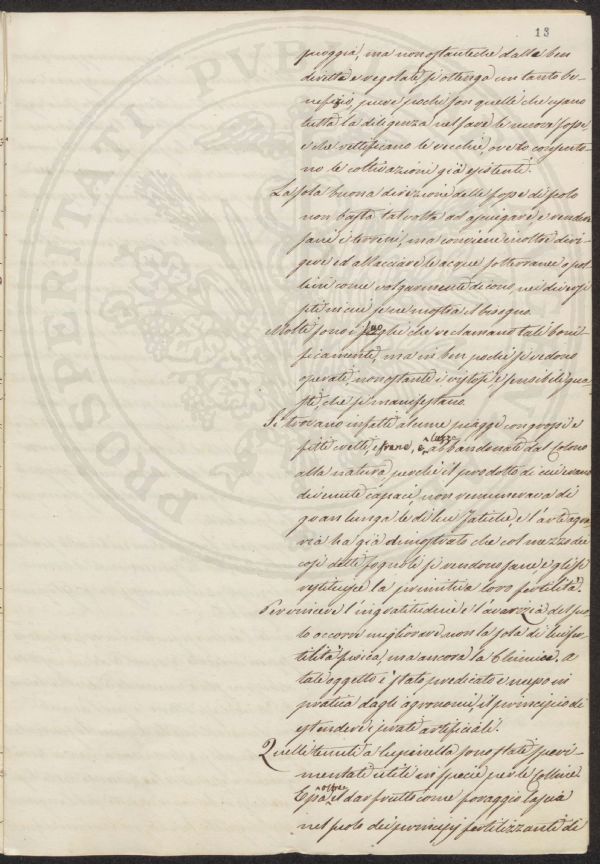 13
pioggia, ma nonostanteché dalle ben
dirette e regolate si ottenga un tanto be-
nefizio, pure pochi son quelli che usano
tutta la diligenza nel fare le nuove fosse,
e che rettificano le vecchie, ove lo consento-
no le coltivazioni già esistenti.
La sola buona direzione delle fosse di scolo
non basta talvolta ad asciugare e render
sani i terreni, ma conviene inoltre diri-
gere ed allacciare le acque sotterranee o pol-
line come volgarmente dicono, nei diversi
siti in cui se ne mostra il bisogno.
Molti sono i luoghi che reclamano tali boni-
ficamenti, ma in ben pochi si vedono
operati nonostante i vistosi e sensibili gua-
sti, che si manifestano.
Si trovano infatti alcune piagge con grossi e
fitti cretti, e frane, e lazze abbandonate dal Colono
alla natura, perché il prodotto di cui erano
divenute capaci, non remunerava di
gran lunga le di lui fatiche, e l'arte agra-
ria ha già dimostrato che col mezzo dei
così detti fognoli si rendono sane e gli si
restituisce la primitiva loro fertilità.
Per vincere l'ingratitudine e l'avarizia del suo-
lo occorre migliorare non la sola di lui fer-
tilità fisica, ma ancora la Chimica. A
tale oggetto è stato predicato e messo in
pratica dagli agronomi, il principio di
estendere i prati artificiali.
Quelli tenuti a lupinella sono stati speri-
mentati utili in specie per le Colline.
Essa oltre il dar frutto come foraggio lascia
nel suolo dei principj fertilizzanti di
PROSPERITATI PVBL